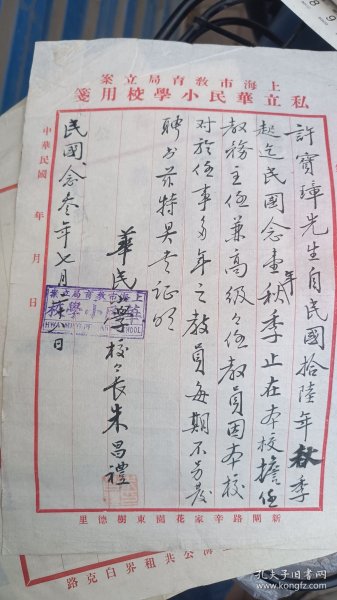 上海市教育局立案
私立華民小學校用箋
許寶璋先生自民國拾陸年秋季
起迄民國念壹年秋季止在本校擔任
教務主任兼高級々任教員因本校
對於任事多年之教員每期不另發
聘書茲特具書証明
華民小學校々長朱昌禮
民國念叁年七月 日
中華民國 年 月 日
上海市教育局立案
新閘路辛家花園東樹德里
公共租界白克路
孔夫子旧书网